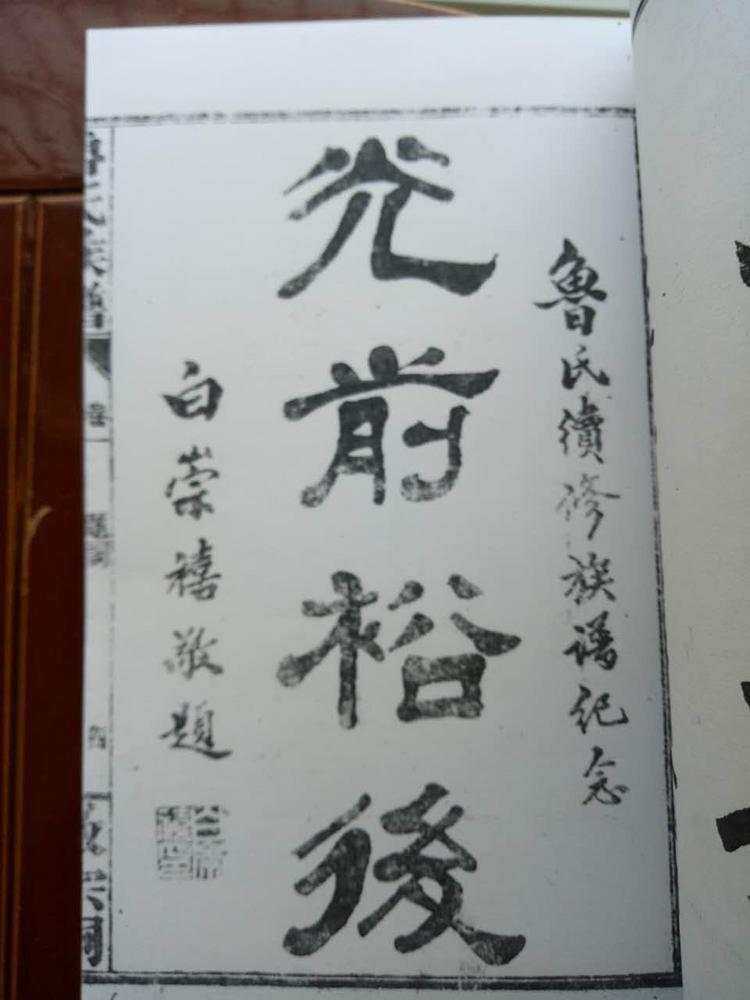 魯氏續修族譜紀念
光前裕後
白崇禧敬題
魯氏族譜
卷
題詞